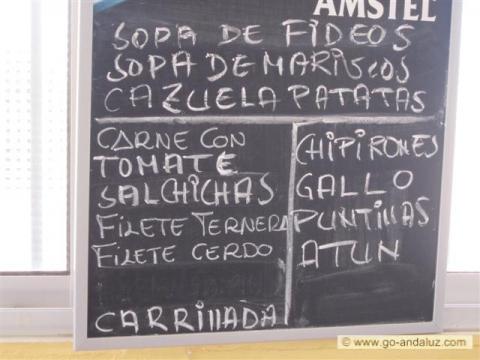 AMSTEL
SOPA DE FIDEOS
SOPA DE MARISCOS
CAZUELA PATATAS
CARNE CON
TOMATE
SALCHICHAS
FILETE TERNERA
FILETE CERDO
CARRILLADA
CHIPIRONES
GALLO
PUNTILLAS
ATUN
© www.go-andaluz.com